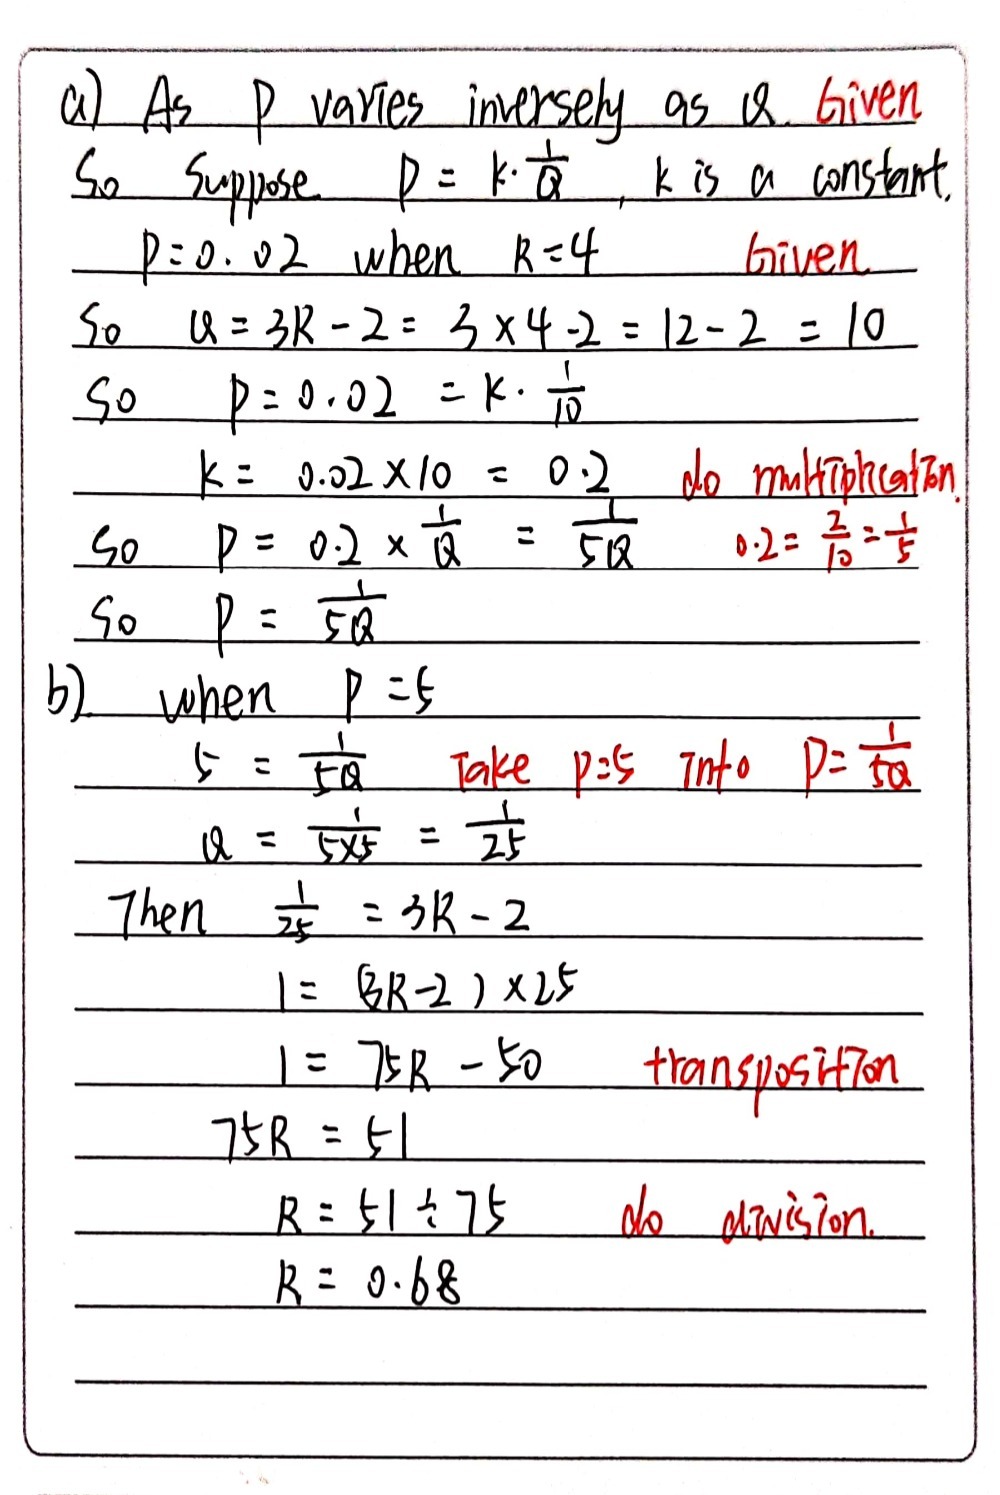 a) As P varies inversely as Q. Given
So Suppose P = k·1/Q, k is a constant.
P=0.02 when R=4 Given
So Q = 3R - 2 = 3 × 4 - 2 = 12 - 2 = 10
So P = 0.02 = k · 1/10
k = 0.02 × 10 = 0.2 do multiplication.
So P = 0.2 × 1/Q = 1/5Q 0.2 = 2/10 = 1/5
So P = 1/5Q
b) when P = 5
5 = 1/5Q Take p=5 into P = 1/5Q
Q = 1/5×5 = 1/25
Then 1/25 = 3R - 2
1 = (3R-2) × 25
1 = 75R - 50 transposition
75R = 51
R = 51 ÷ 75 do division.
R = 0.68